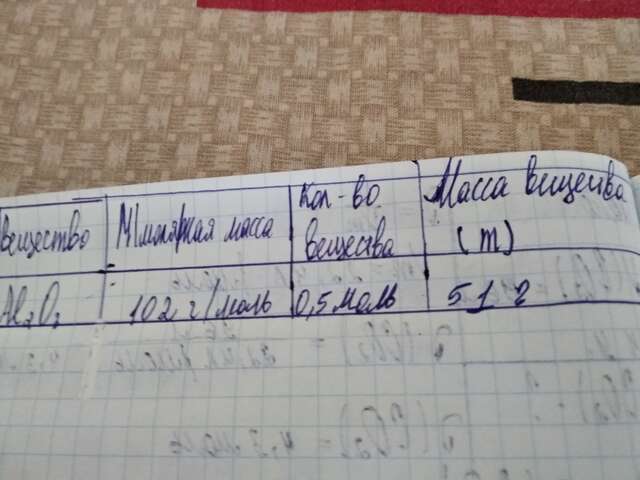 вещество М/молярная масса Кол-во вещества Масса вещества (m)
Al₂O₃ 102 г/моль 0,5 моль 51 г